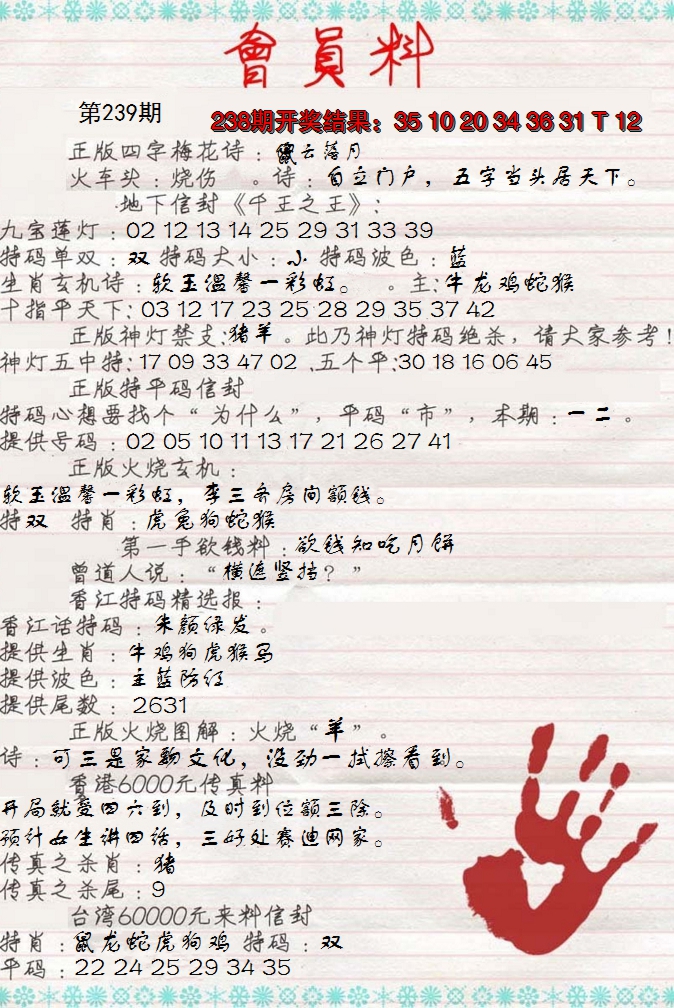 會員料
第239期
238期开奖结果：35 10 20 34 36 31 T 12
正版四字梅花诗：鼠云落月
火车头：烧伤 。诗：自立门户，五字当头居天下。
地下信封《千王之王》：
九宝莲灯：02 12 13 14 25 29 31 33 39
特码单双：双 特码大小：小 特码波色：蓝
生肖玄机诗：软玉温馨一彩虹。 。主：牛龙鸡蛇猴
十指平天下：03 12 17 23 25 28 29 35 37 42
正版神灯禁支：猪羊。此乃神灯特码绝杀，请大家参考！
神灯五中特：17 09 33 47 02 、五个平：30 18 16 06 45
正版特平码信封
特码心想要找个“为什么”，平码“市”，本期：一二。
提供号码：02 05 10 11 13 17 21 26 27 41
正版火烧玄机：
软玉温馨一彩虹，李三务房问额钱。
特双 特肖：虎兔狗蛇猴
第一手欲钱料：欲钱知吃月饼
曾道人说：“横遮竖挡？”
香江特码精选报：
香江话特码：朱颜绿发。
提供生肖：牛鸡狗虎猴马
提供波色：主蓝防红
提供尾数：2631
正版火烧图解：火烧“羊”。
诗：可三是家物文化，没劲一拭擦看到。
香港6000元传真料
开局就爱四六到，及时到位额三除。
预计女生讲四话，三好处赛迪网家。
传真之杀肖：猪
传真之杀尾：9
台湾60000元来料信封
特肖：鼠龙蛇虎狗鸡 特码：双
平码：22 24 25 29 34 35